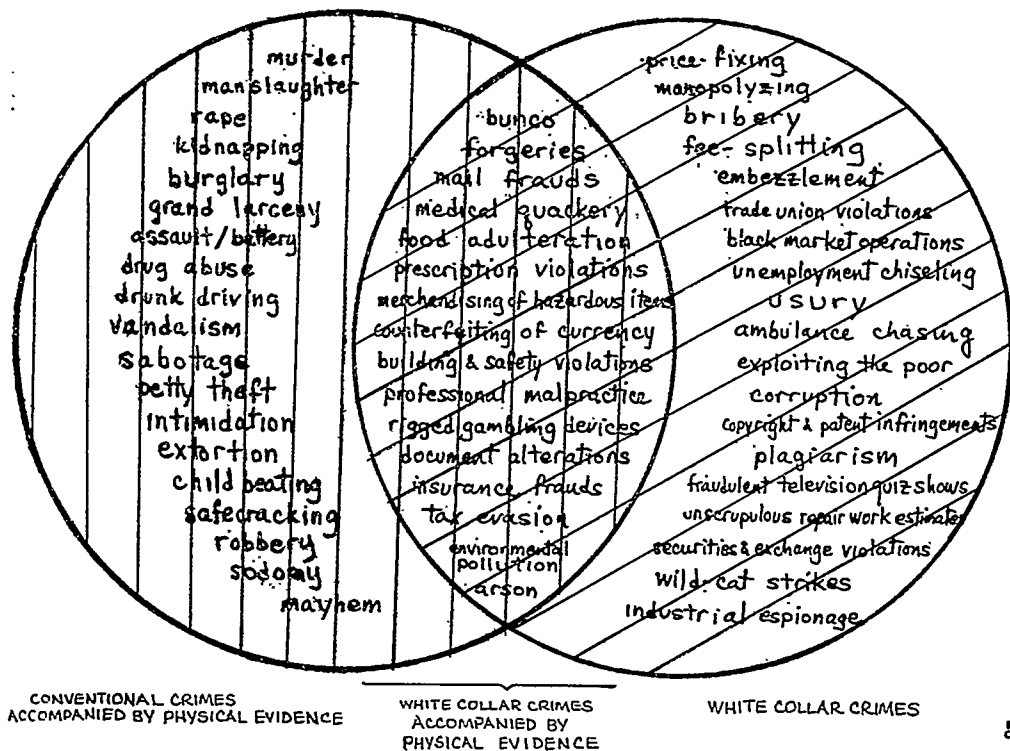 murder
manslaughter
rape
kidnapping
burglary
grand larceny
assault/battery
drug abuse
drunk driving
vandalism
sabotage
petty theft
intimidation
extortion
child beating
safecracking
robbery
sodomy
mayhem
bunco
forgeries
mail frauds
medical quackery
food adulteration
prescription violations
merchandising of hazardous items
counterfeiting of currency
building & safety violations
professional malpractice
rigged gambling devices
document alterations
insurance frauds
tax evasion
environmental
pollution
arson
price-fixing
monopolyzing
bribery
fee-splitting
embezzlement
trade union violations
black market operations
unemployment chiseling
usury
ambulance chasing
exploiting the poor
corruption
copyright & patent infringements
plagiarism
fraudulent television quiz shows
unscrupulous repair work estimates
securities & exchange violations
wild-cat strikes
industrial espionage
CONVENTIONAL CRIMES
ACCOMPANIED BY PHYSICAL EVIDENCE
WHITE COLLAR CRIMES
ACCOMPANIED BY
PHYSICAL EVIDENCE
WHITE COLLAR CRIMES